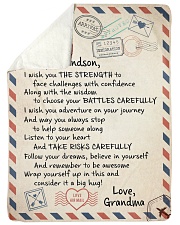 ARRIVED
ndson,
I wish you THE STRENGTH to
face challenges with confidence
Along with the wisdom
to choose your BATTLES CAREFULLY
I wish you adventure on your journey
And may you always stop
to help someone along
Listen to your heart
And TAKE RISKS CAREFULLY
Follow your dreams, believe in yourself
And remember to be awesome
Wrap yourself up in this and
consider it a big hug!
Love,
Grandma